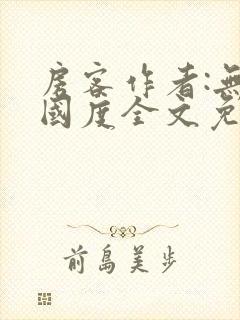 房客作者:無
國度全文免
前島美步